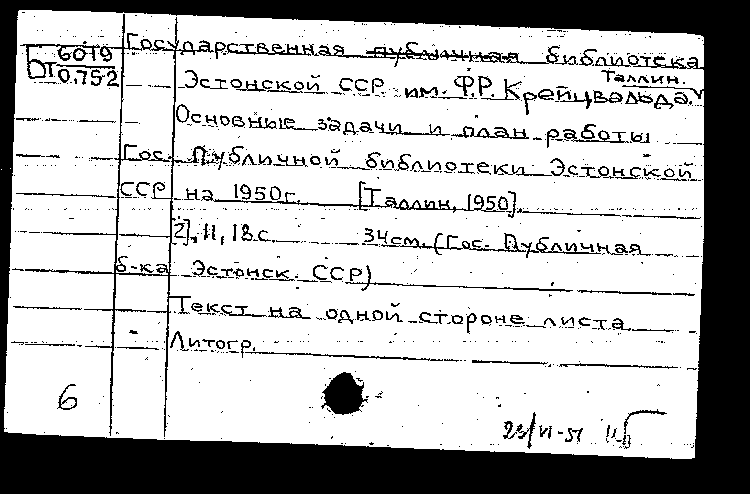 Б 6019
Эт 0.752
Государственная публичная библиотека
Таллин.
Эстонской ССР им. Ф.Р. Крейцвальда.
Основные задачи и план работы
Гос. Публичной библиотеки Эстонской
ССР на 1950г. [Таллин, 1950].
2], 11, 18 с. 34см. (Гос. Публичная
б-ка Эстонск. ССР)
Текст на одной стороне листа
Литогр.
6
23/VI-51